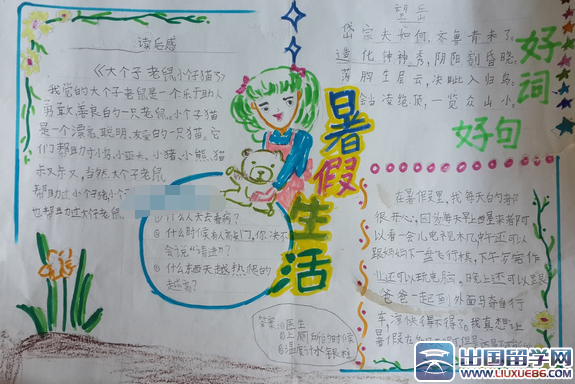 读后感
《大个子老鼠小个子猫》
我觉的大个子老鼠是一个乐于助人
勇敢又善良的一只老鼠。小个子猫
是一个漂亮、聪明、
的一只猫。它
们帮助过小鸟、小
、小猪、小熊、猫
当然,大个子老鼠
帮助过小个子猫,小个子
也帮助过大个子老鼠
什么人天天看病?
②什么时候有人敲门,你决不
会说“请进”?
③什么东西天越热爬的
越高?
答案:①医生
②上厕所的时候
③温度计水银柱
暑假生活
望岳
岱宗夫如何,齐鲁青未了。
造化钟神秀,阴阳割昏晓。
荡胸生层云,决眦入归鸟。
会当凌绝顶,一览众山小。
好词
好句
在暑假里,我每天的都
很开心,因为每天早上
可
以看一会儿电视,中午还可以
跟妈妈下一盘飞行棋,下午写完作
业还可以玩电脑。晚上还可以跟
爸爸一起到外面马路
自行
车,
得不得了。我真想让
暑假在
出国留学网
WWW.LIUXUE86.COM